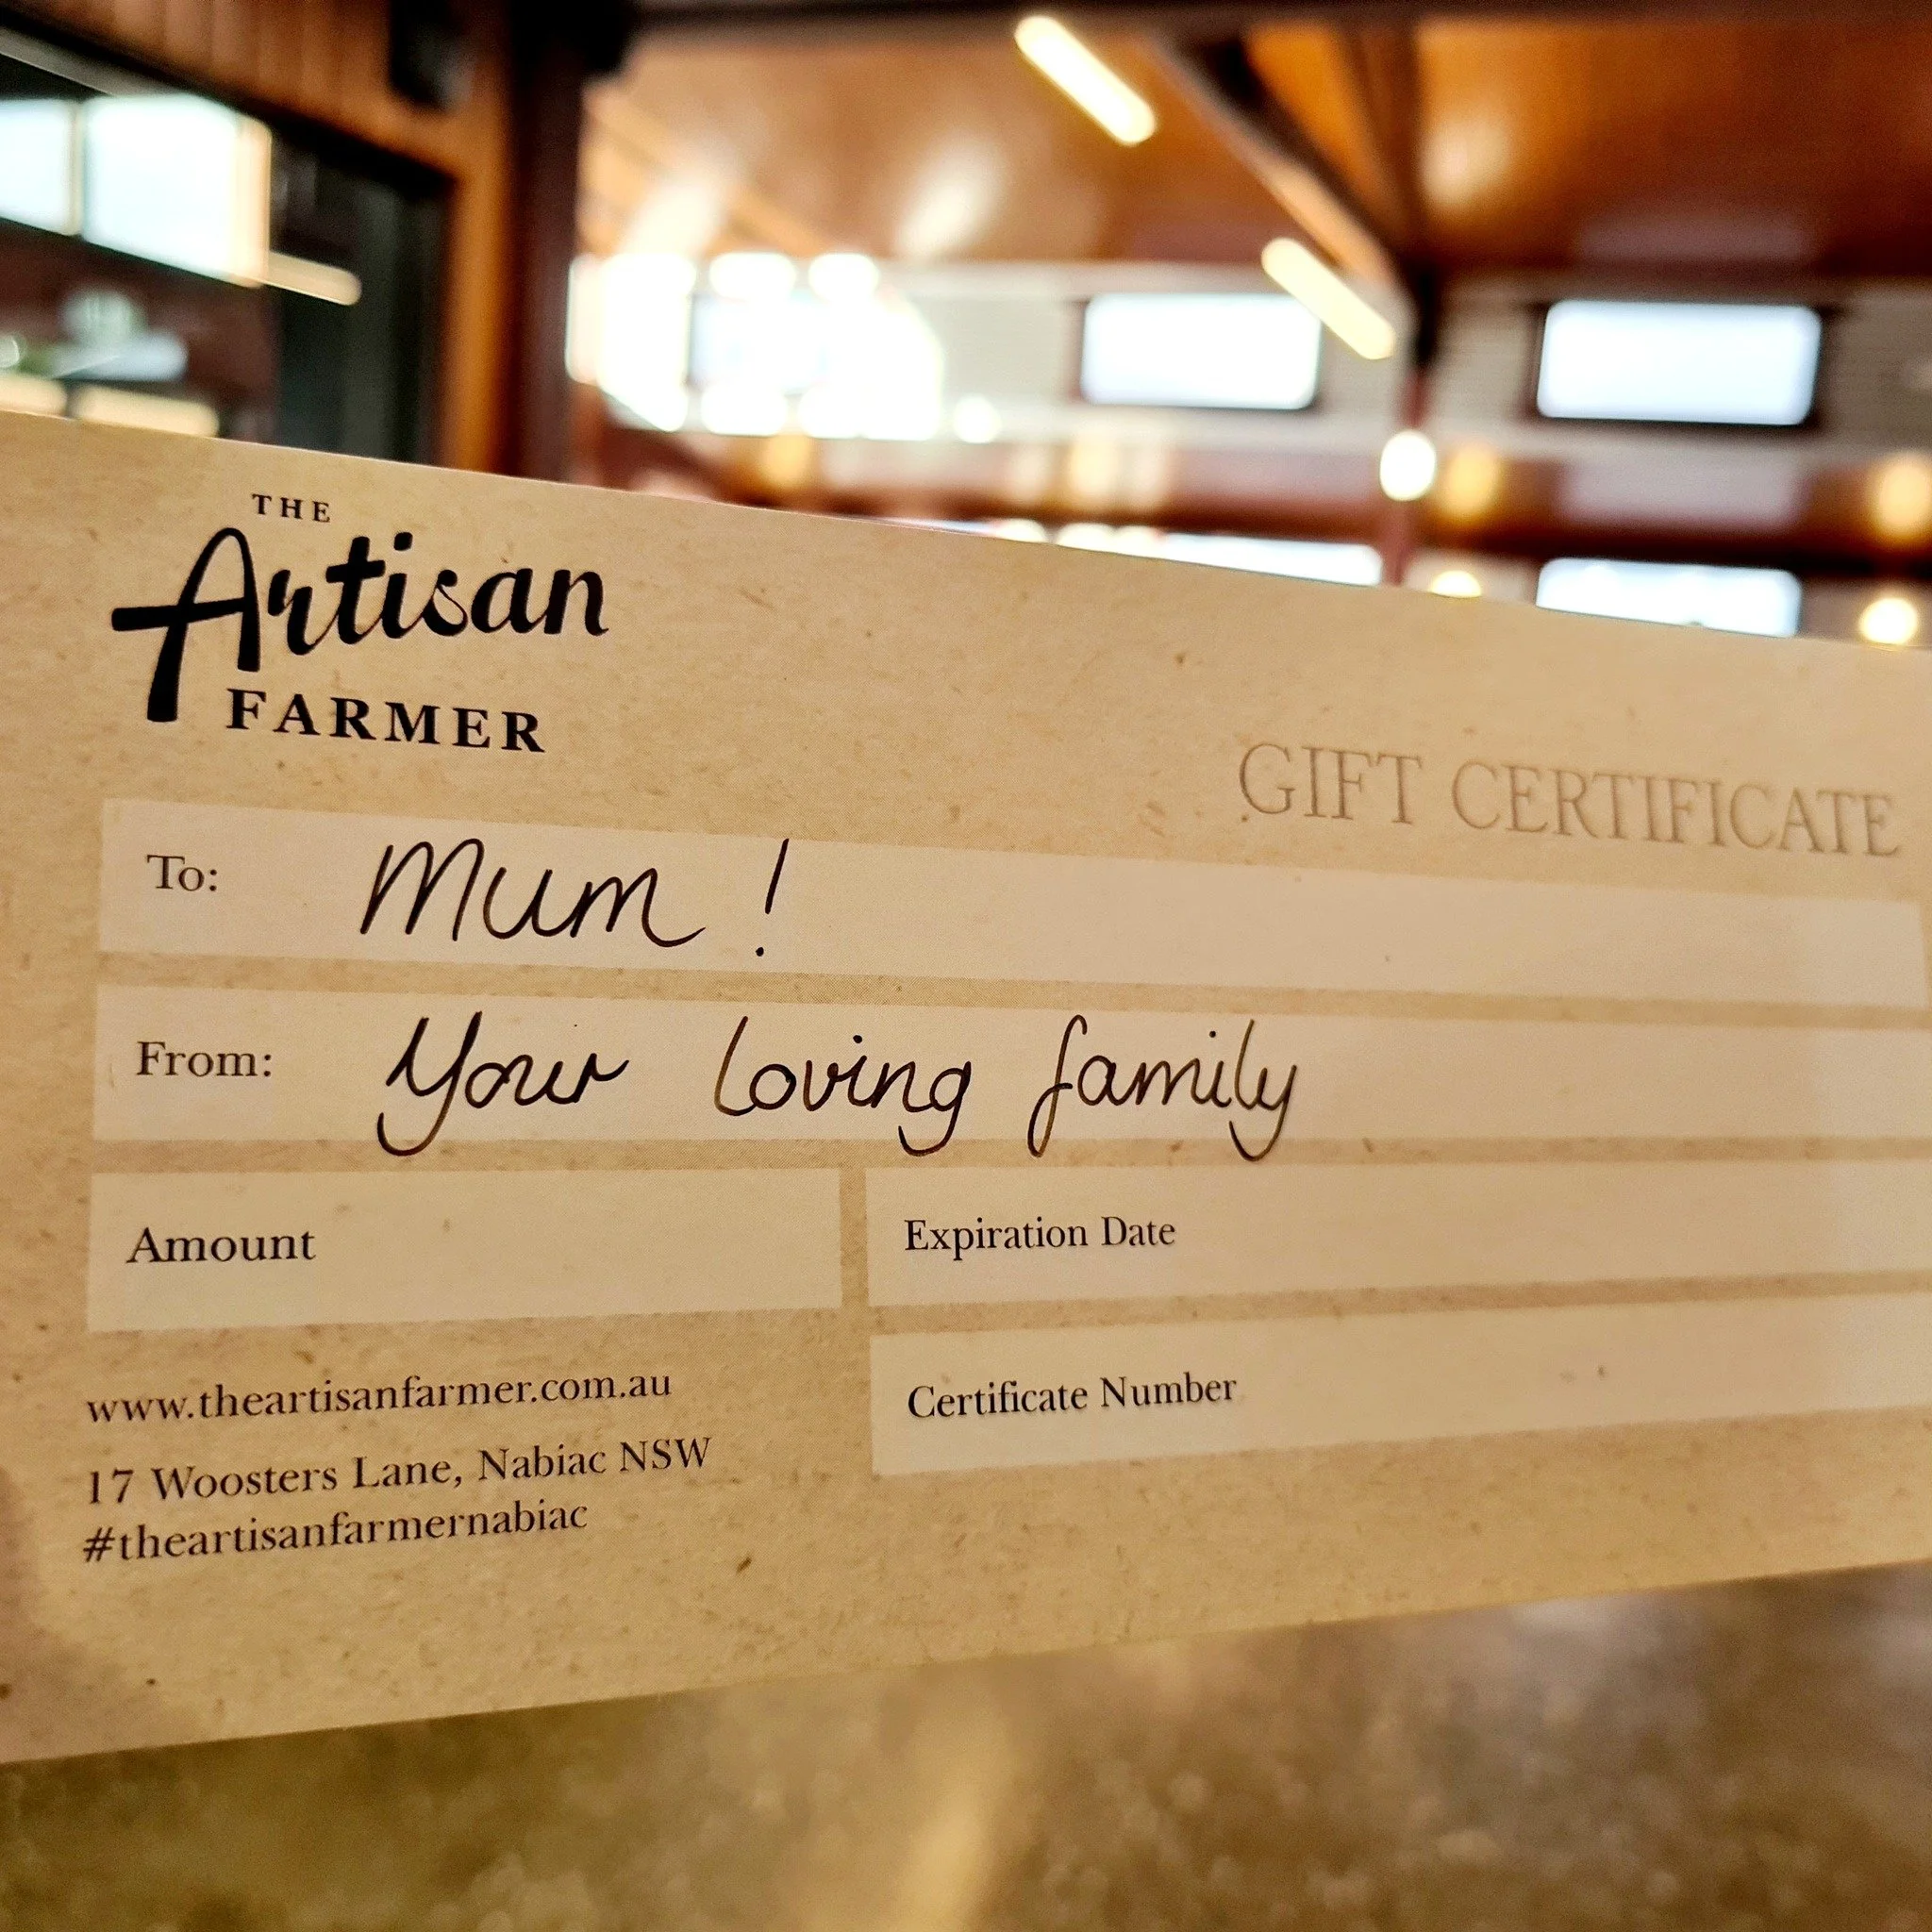 THE
Artisan
FARMER
GIFT CERTIFICATE
To: Mum !
From: Your loving family
Amount
Expiration Date
Certificate Number
www.theartisanfarmer.com.au
17 Woosters Lane, Nabiac NSW
#theartisanfarmernabiac